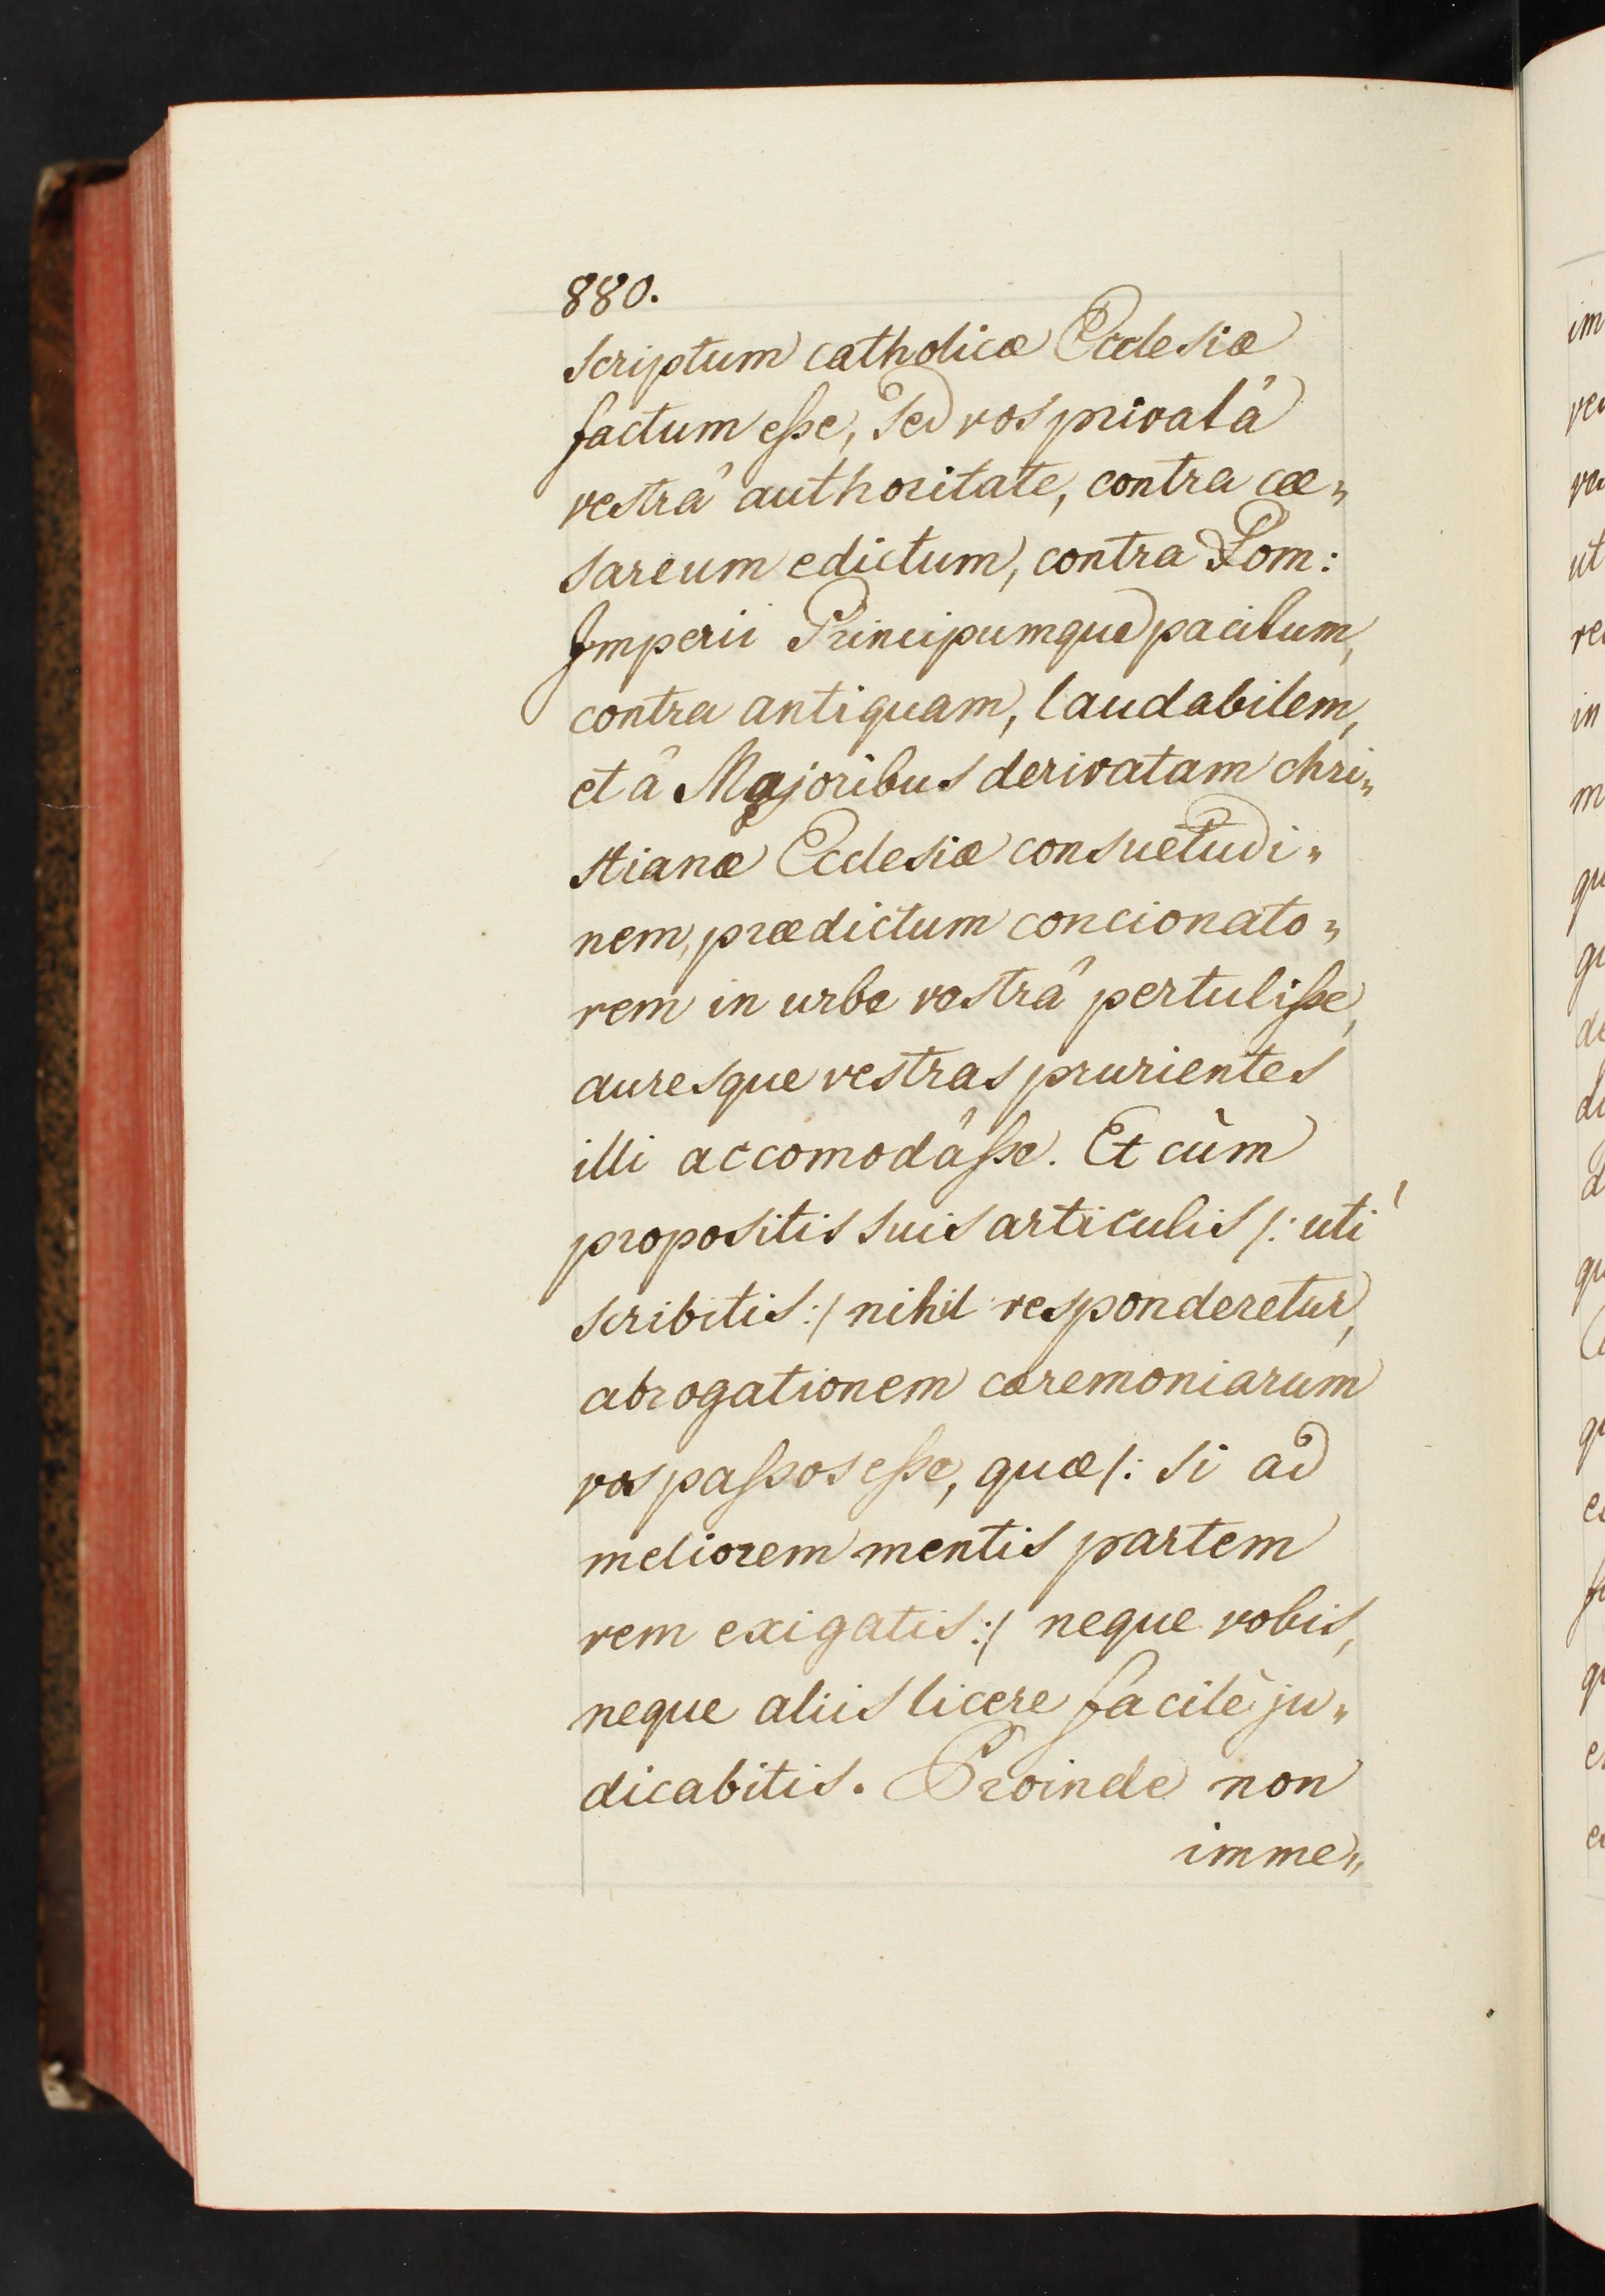 880.
scriptum catholicæ Ecclesiæ
factum eße, sed vos privatâ
vestrâ authoritate, contra cæ„
sareum edictum, contra Rom:
Imperii Principumque pacitum,
contra antiquam, laudabilem,
et â Majoribus derivatam chri„
stianæ Ecclesiæ consuetudi„
nem, prædictum concionato„
rem in urbe vestrâ pertuliße,
auresque vestras prurientes
illi accomodâße. Et cùm
propositis suis articulis /: uti
scribitis :/ nihil responderetur,
abrogationem cæremoniarum
vos paßos eße, quæ /: si ad
meliorem mentis partem
rem exigatis :/ neque vobis,
neque aliis licere facilè ju„
dicabitis. Proinde non
imme„